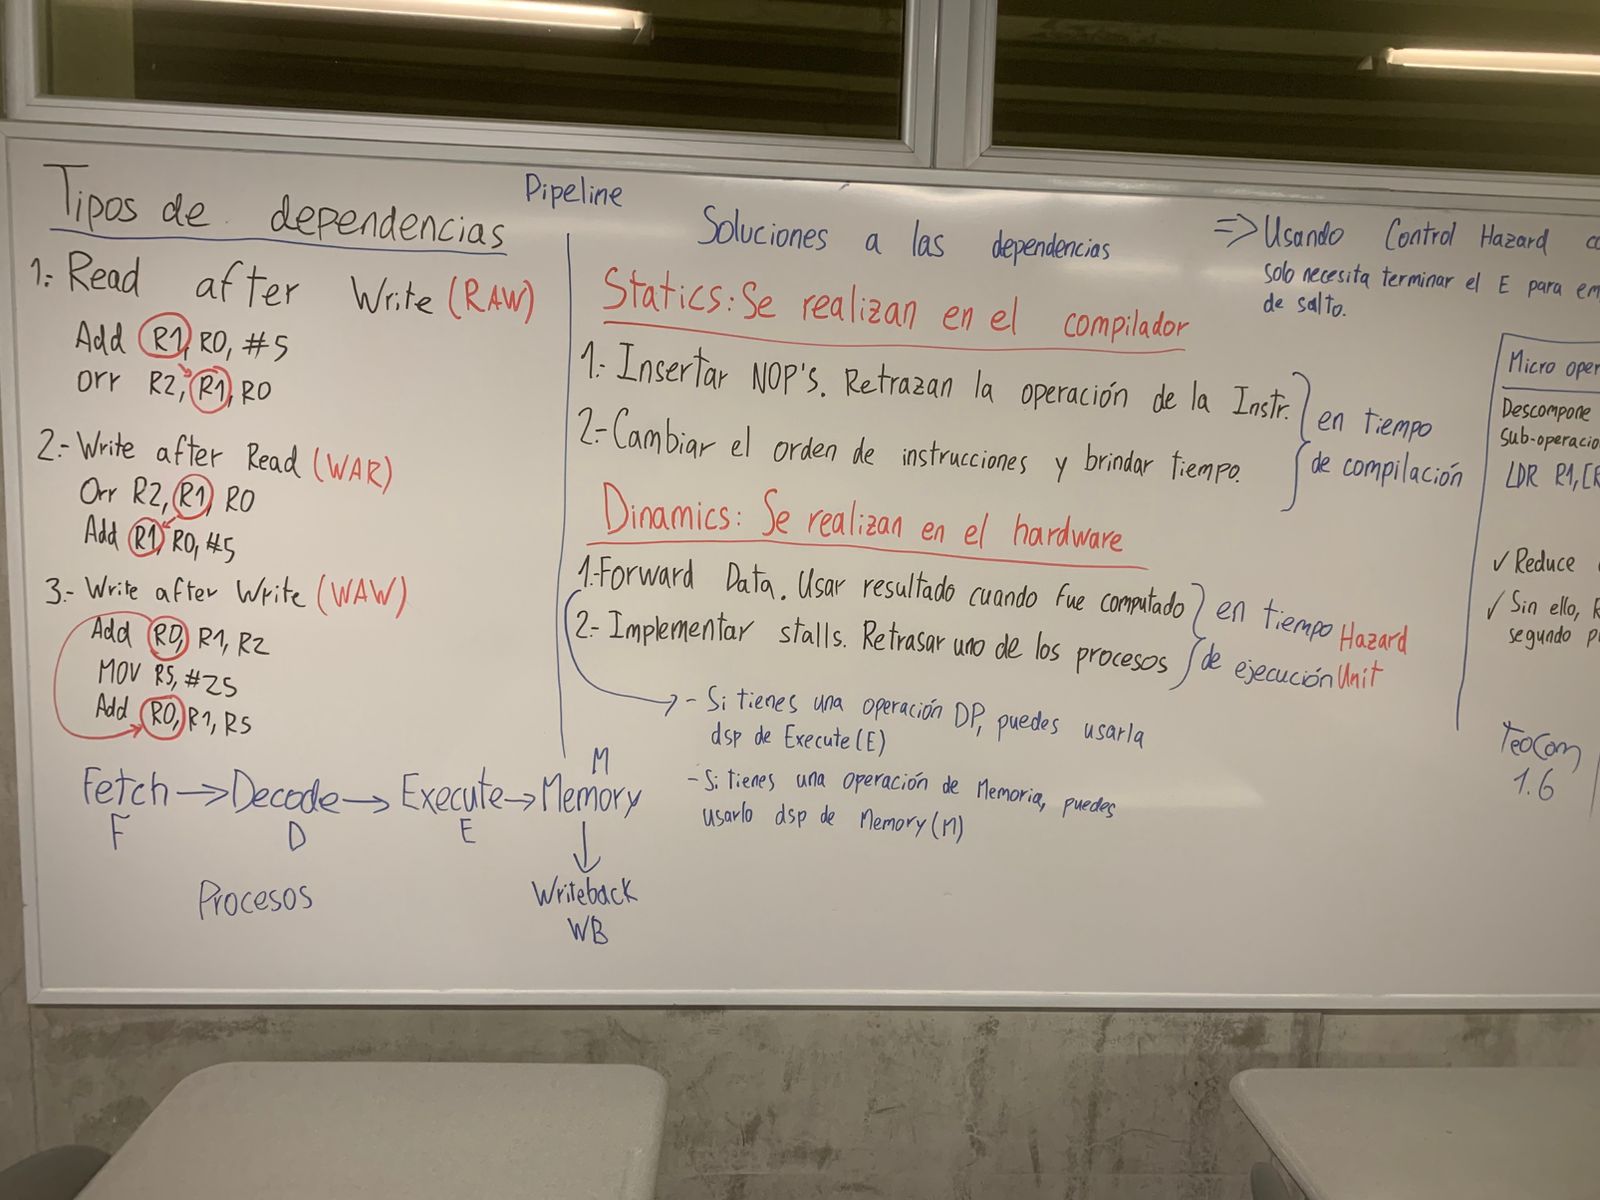 Pipeline
Tipos de dependencias
1.- Read after Write (RAW)
Add R1, R0, #5
orr R2, R1, R0
2.- Write after Read (WAR)
Orr R2, R1, R0
Add R1, R0, #5
3.- Write after Write (WAW)
Add R0, R1, R2
MOV R5, #25
Add R0, R1, R5
Fetch → Decode → Execute → Memory
F D E M
Writeback
WB
Procesos
Soluciones a las dependencias
Statics: Se realizan en el compilador
1.- Insertar NOP'S. Retrazan la operación de la Instr.
2.- Cambiar el orden de instrucciones y brindar tiempo.
en tiempo
de compilación
Dinamics: Se realizan en el hardware
1.- Forward Data. Usar resultado cuando fue computado
2.- Implementar stalls. Retrasar uno de los procesos
en tiempo
de ejecución
Hazard
Unit
- Si tienes una operación DP, puedes usarla
dsp de Execute (E)
- Si tienes una operación de Memoria, puedes
usarlo dsp de Memory (M)
⇒ Usando Control Hazard
solo necesita terminar el E para
de salto.
Micro
Descompone
LDR R1,
✓ Reduce
✓ Sin ello,
segundo
TeoCom
1.6